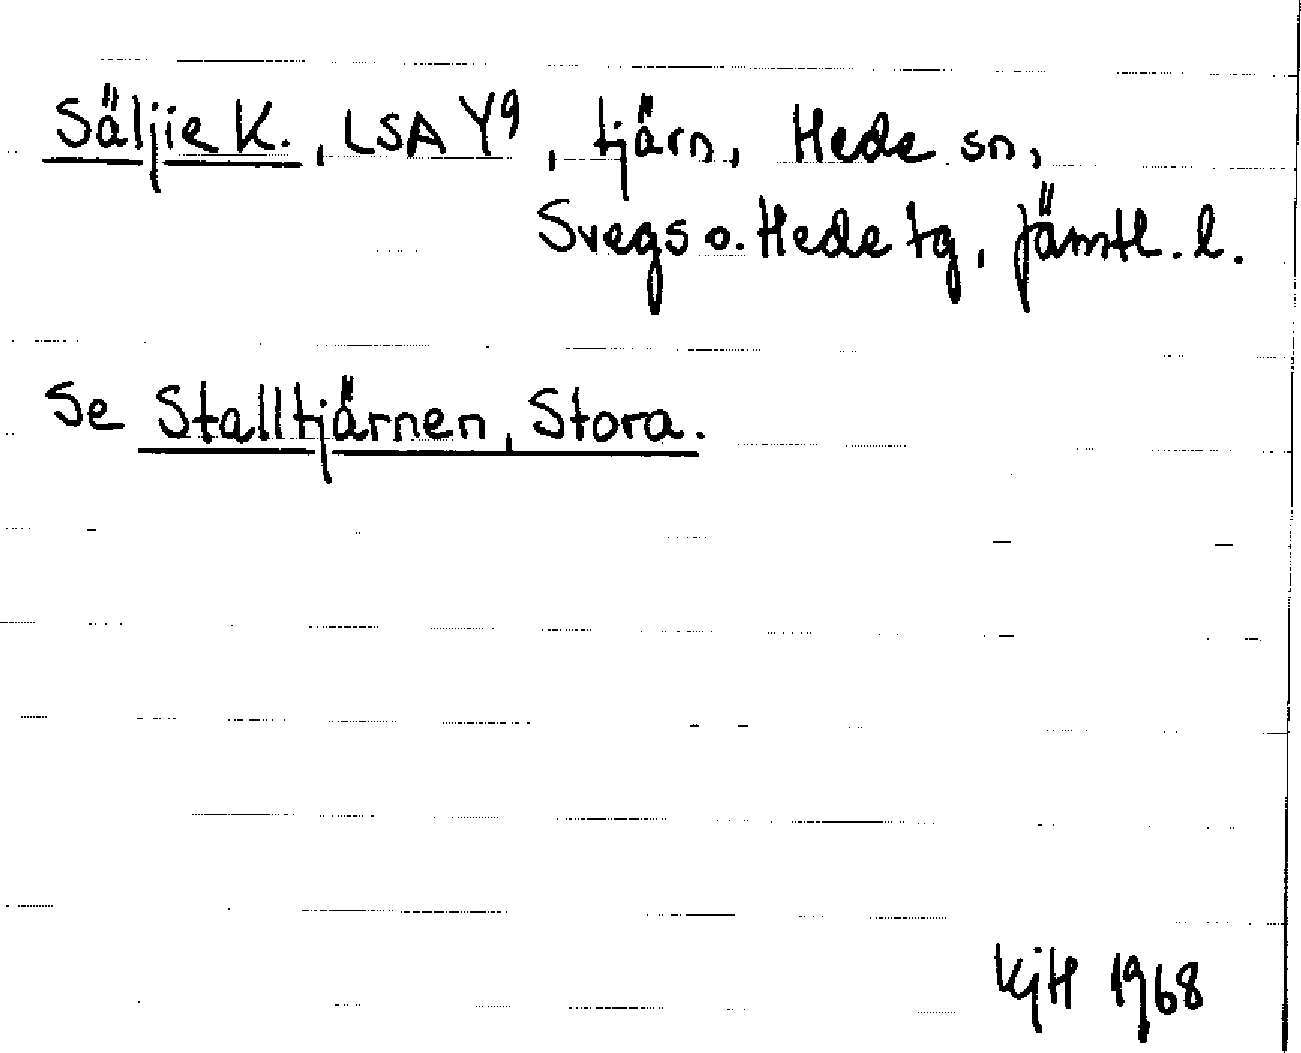 Säljie K., LSA Y9, tjärn, Hede sn,
Svegs o. Hede tg, Jämtl. l.
Se Stalltjärnen, Stora.
KjH 1968